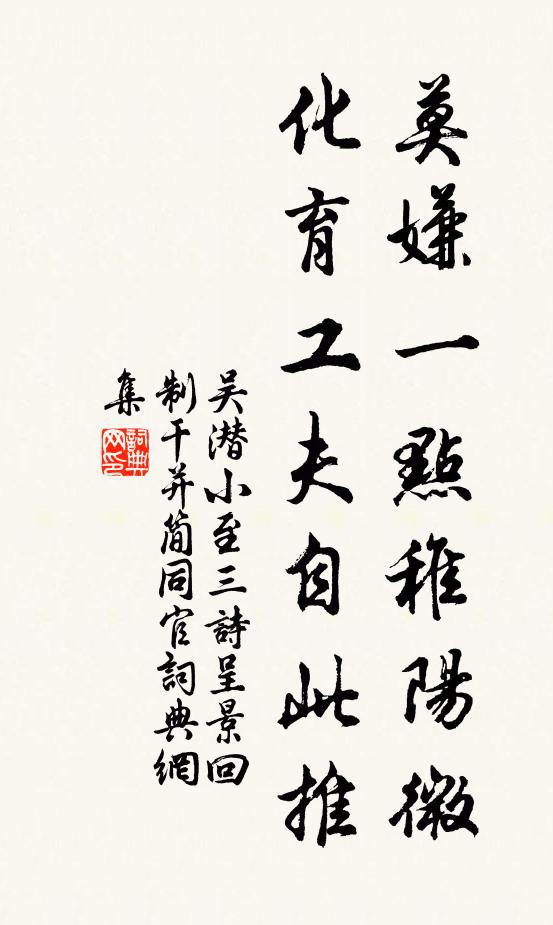 莫嫌一點稚陽微
化育工夫自此推
吴潜小至三詩呈景回
制干并简同官詞典網
集
詞典网印